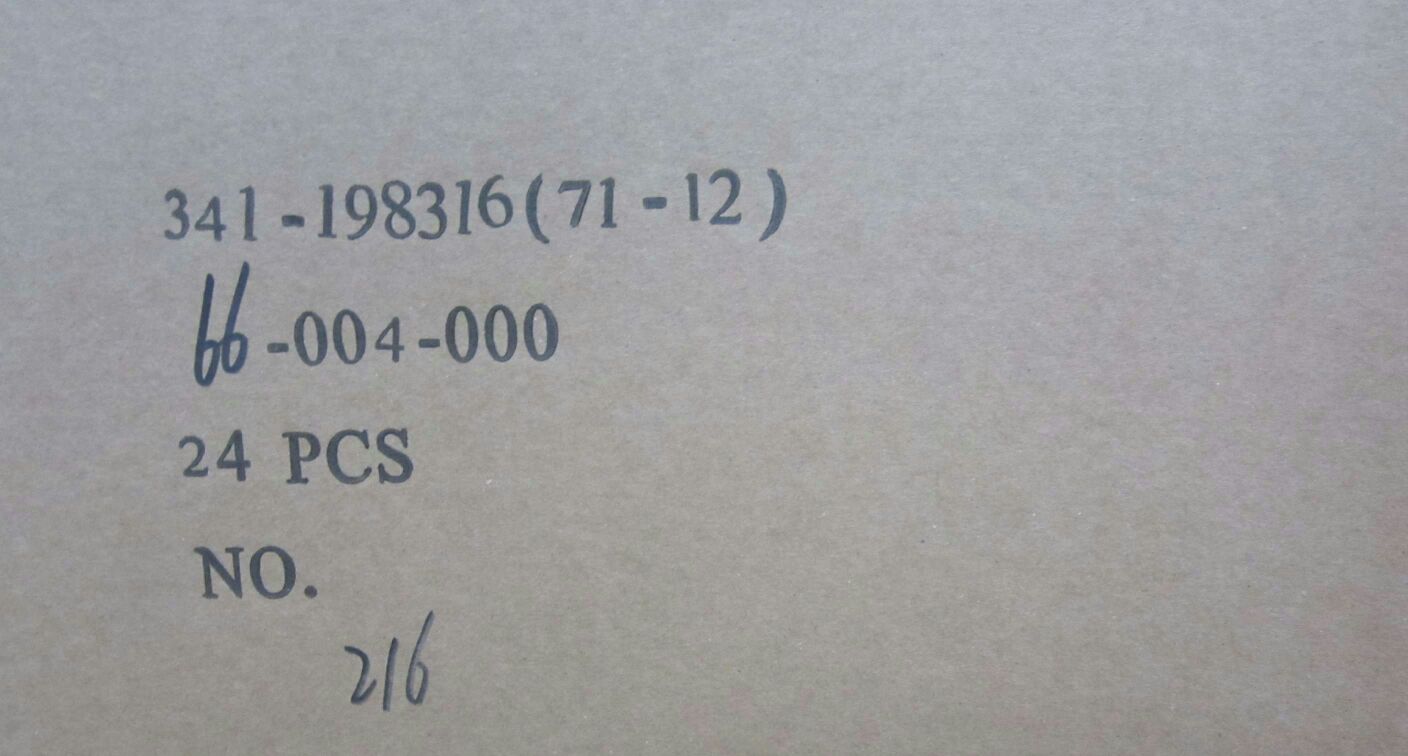 341-198316(71-12)
66-004-000
24 PCS
NO.
216